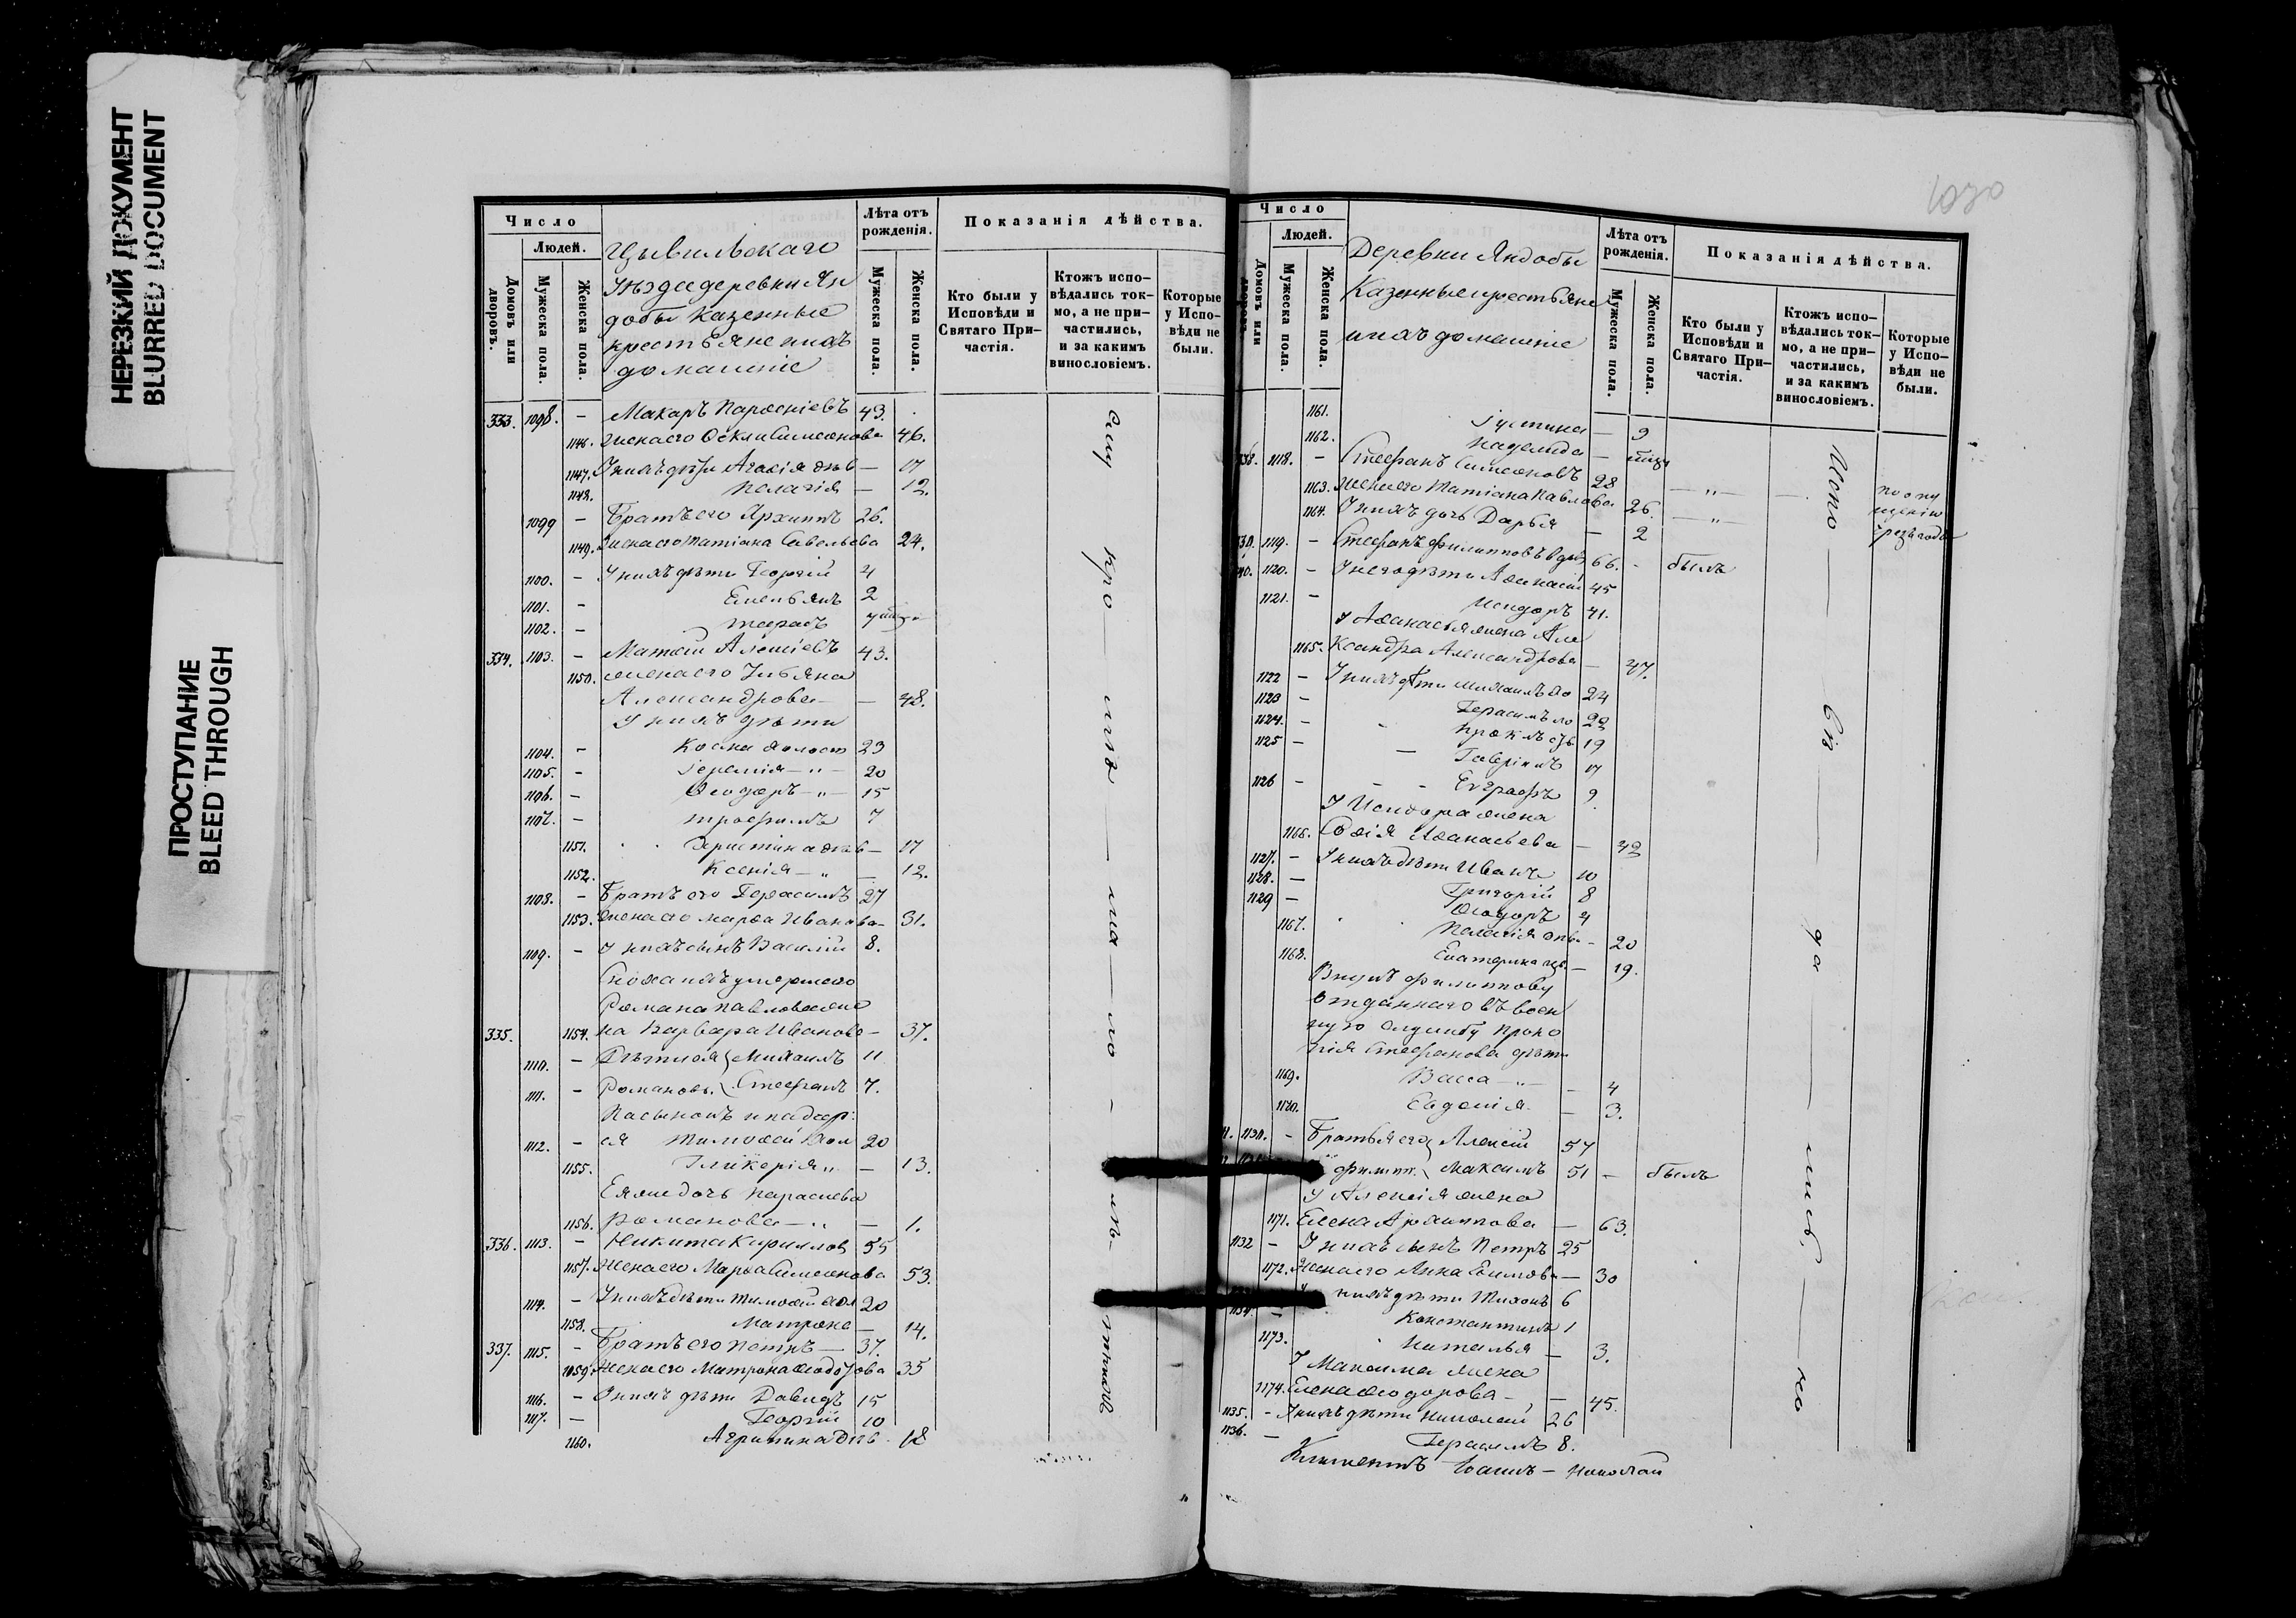 НЕРЕЗКИЙ ДОКУМЕНТ
BLURRED DOCUMENT
ПРОСТУПАНИЕ
BLEED THROUGH
Число
Людей.
Домовъ или дворовъ.
Мужеска пола.
Женска пола.
Цывильскаго
Уѣзда деревни Ян
добы Казенные
крестьяне и ихъ
домашніе
Лѣта отъ рожденія.
Мужеска пола.
Женска пола.
Показанія дѣйства.
Кто были у Исповѣди и Святаго Причастія.
Ктожъ исповѣдались токмо, а не причастились, и за какимъ винословіемъ.
Которые у Исповѣди не были.
333. 1098. – Макаръ 43.
1146. жена его Семенова 46.
1147. У нихъ дѣти дѣв – 17
1148. Пелагія – 12.
1099 – Братъ его Архипъ 26.
1149. Жена его Татіана Савельева 24.
1100. – У нихъ дѣти Георгій 4
1101. – Емельянъ 2
1102. –
334. 1103. – Матвѣй 43.
1150. жена его Ульяна
Александрова – – 48.
У нихъ дѣти
1104. – Косма холост 23
1105. – Іеремія – „ – 20
1106. – Ѳеодоръ – „ – 15
1107. – Трофимъ 7
1151. Христина дѣв – 17
1152. Ксенія – „ – 12.
1108. – Братъ его Герасимъ 27
1153. Жена его Марѳа Иванова – 31.
1109. – У нихъ сынъ Василій 8.
Сноха ихъ умершаго
Романа Павлова же
335. 1154. на Варвара Иванова – 37.
1110. – Дѣти ея Михаилъ 11
1111. – Романовы Стефанъ 7.
Пасынокъ и падчер:
1112. – ея Тимоѳей Хол 20
1155. Гликерія „ – 13.
Ея же дочь
1156. Романова – „ – 1.
336. 1113. – Никита Кириллов 55
1157. Жена его Марѳа Семенова 53.
1114. – У нихъ дѣти Тимоѳей хол 20
1158. Матрона – 14.
337. 1115. – Братъ его Петръ – 37.
1059. Жена его Матрона Ѳеодорова 35
1116. – У нихъ дѣти Давидъ 15
1117. – Георгій 10
1160. Агрипина дѣв 18
1030
Число
Людей.
Домовъ или дворовъ.
Мужеска пола.
Женска пола.
Деревни Яндобы
Казенные крестьяне
и ихъ домашніе
Лѣта отъ рожденія.
Мужеска пола.
Женска пола.
Показанія дѣйства.
Кто были у Исповѣди и Святаго Причастія.
Ктожъ исповѣдались токмо, а не причастились, и за какимъ винословіемъ.
Которые у Исповѣди не были.
1161. Іустина – 9
1162. Надежда –
338. 1118. – Стефанъ Симеоновъ 28 – „ – – по опу
1163. Жена его Татіана Павлова 26. – „ – щенію
1164. У нихъ дочь Дарья – 2
339. 1119. – Стефанъ Филипповъ 66. – былъ
340. 1120. – У него дѣти Аѳанасій 45
1121. – Исидоръ 41.
У Аѳанасья жена Але
1165. ксандра Александрова – 47.
1122 – У нихъ дѣти Михаилъ хо 24
1123 – Герасимъ хо 22
1124. – Проклъ 19
1125 – Гавріилъ 17
1126 – Евграфъ 9
У Исидора жена
1166. Софія Аѳанасьева – 42
1127. – У нихъ дѣти Иванъ 10
1128. – Григорій 8
1129 – Ѳеодоръ 4
1167. Пелагія – 20
1168. Екатерина – 19.
Внукъ Филиппову
отданнаго въ воен
ную службу Проко
пія Стефанова дѣти
1169. Васса – „ – – 4
1170. Евдокія. – 3.
1130. – Братья его Алексій 57
Филип. Максимъ 51 – былъ
У Алексія жена
1171. Елена Архиппова – 63.
1132 – У нихъ сынъ Петръ 25
1172. Жена его Анна – 30
нихъ дѣти Тихонъ 6
1134. – Константинъ 1
1173. Наталья – 3.
У Максима жена
1174. Елена Ѳеодорова – – 45.
1135. – У нихъ дѣти Николай 26
1136. – Герасимъ 8.
Климентъ –